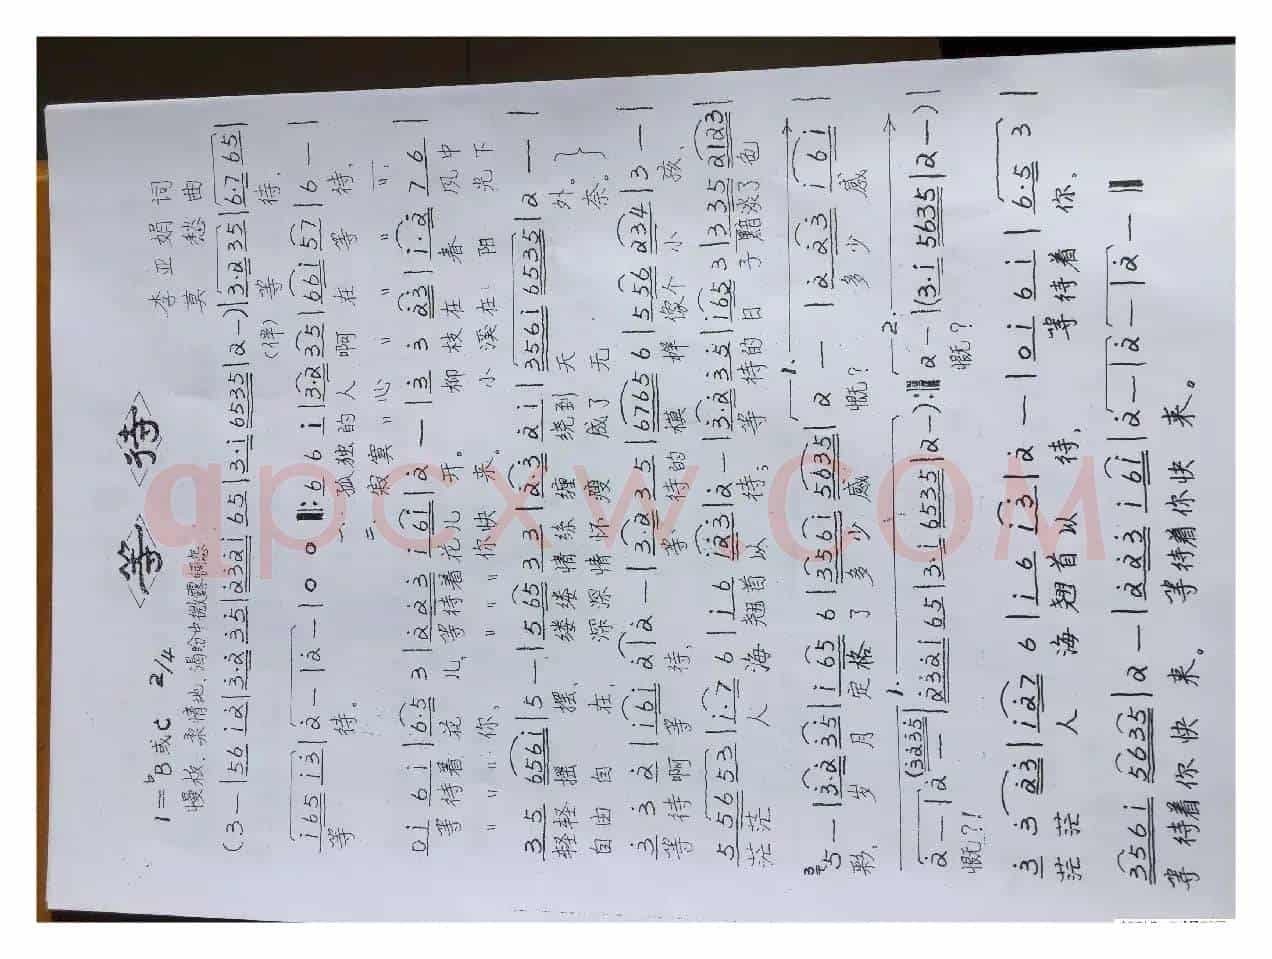 等 待
1=ᵇB或C 2/4
李亚娟 词
慢板、柔情地、渴盼中微露惆怅
莫愁 曲
(3 — |5 6 i 2|3·2 3 5|2 3 2 i 6 5|3·i 6 5 3 5|2 —)|3·2 3 5|6·7 6 5|
(伴) 等 待,
i 6 5 i 3|2 — |2 — |0 0 𝄆 6 6 i |3·2 3 5|6 6 i 5 7|6 — |
等 待。 一、孤独的人啊在等待,
二、寂寞 " 心 " " " ":
0 i 6 i |6·5 3 |2 2 2 3 i 6 i|2 — |3 3 2 3|i·2 7 6 |
等待着花儿,等待着花儿开。 柳枝在春风中
" " " 你, " " " 你快来。 小溪在阳光下
3 5 6 5 6 i|5 — |5 6 5 3 3|2·3 2 i |3 5 6 i 6 5 3 5|2 — |
轻轻摇摆, 缕缕情缘缠绕到天外。
自由自在, 深深情怀瘦成了无奈。
3 3 2 |i 6 i 2|2 — |3·2 3 5|6 7 6 5 6|5 5 6 2 3 4|3 — |
等待啊等待, 等待的模样像个小孩,
5 5 6 5 3|i·7 6 |i 6 i 2 3|2 — |3·2 3 5|i 6 5 3|3 3 5 2 1 2 3|
茫茫人海翘首以待; 等待的日子黯淡了色
5 — |3·2 3 5|i 6 5 6 |3 5 6 i 5 6 3 5|2 — |2 2 2 3 i 6 i|
彩, 岁月定格了多少感慨? 多少感
2 — |2 — |2 3 2 i 6 5|3·i 6 5 3 5|2 —):𝄇 2 — |(3·i 5 6 3 5|2 —)|
慨?! 慨?
3 3 2 3|i 2 7 6 |i 6 i 3|2 — |0 i 6 i |6·5 3 |
茫茫人海翘首以待, 等待着你,
3 5 6 i 5 6 3 5|2 — |2 2 2 3 i 6 i|2 — |2 — |2 — ‖
等待着你快来。 等待着你快来。
qpcxw.COM